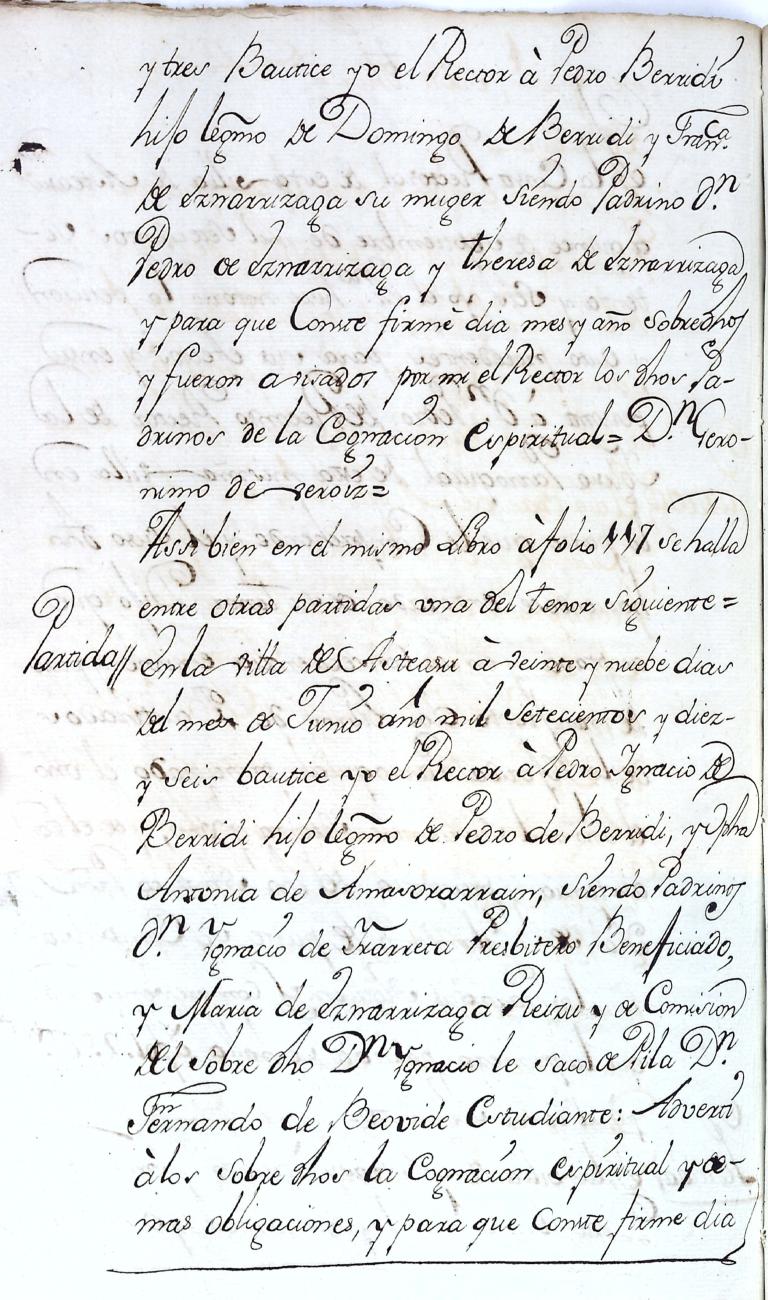 y tres Bautice yo el Rector à Pedro Berridi
hijo legmo de Domingo de Berridi y Franca
de Eznarrizaga su muger siendo Padrino Dn
Pedro de Eznarrizaga y theresa de Eznarrizaga
y para que Conste firmè dia mes y año sobredhos
y fueron avisados por mi el Rector los dhos Pa-
drinos de la Cognacion espiritual= Dn Gero-
nimo de veroiz=
Assi bien en el mismo Libro à folio 117 se halla
entre otras partidas vna del tenor siguiente=
Partida// En la villa de Asteasu à veinte y nuebe dias
del mes de Junio año mil setecientos y diez-
y seis bautice yo el Rector à Pedro Ignacio de
Berridi hijo legmo de Pedro de Berridi, y Jpha
Antonia de Amasorarrain, siendo Padrinos
Dn Ygnacio de Yrarreta Presbitero Beneficiado,
y Maria de Eznarrizaga Reizu y de Comision
del sobre dho Dn Ygnacio le saco de Pila Dn
Fernando de Beovide Estudiante: Adverti
à los sobre dhos la Cognacion espiritual y de-
mas obligaciones, y para que Conste firme dia